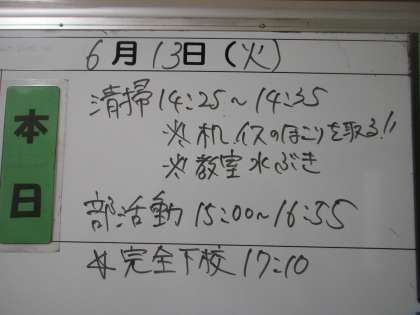 6月13日(火)
本日
清掃 14:25～14:35
※机、イスのほこりを取る!!
※教室水ぶき
部活動 15:00～16:55
※完全下校 17:10